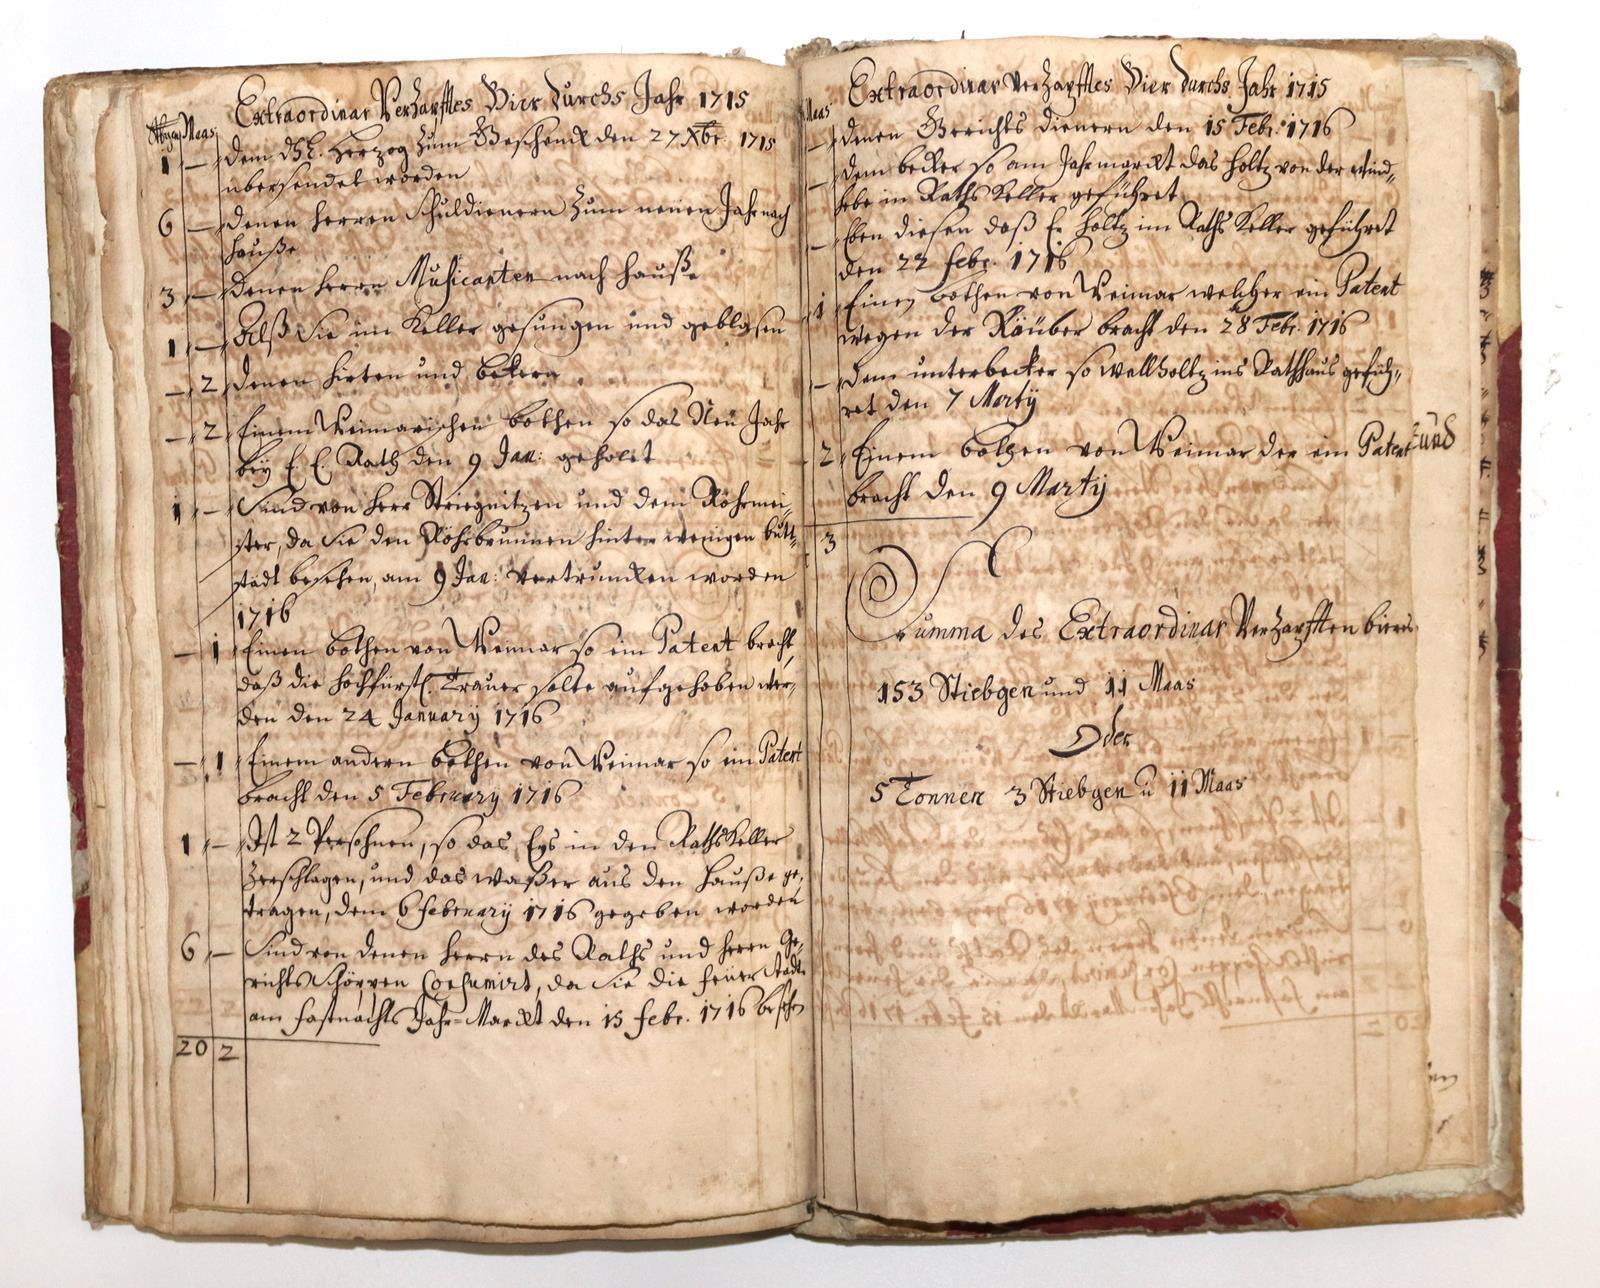 Extraordinar Verzapfftes Bier durchs Jahr 1715
Maas
1 — dem Herzog zum Geschenck den 27 Xbr. 1715
übersendet worden
6 — denen Herren Schuldienern zum neuen Jahr nach
Hauße
3 — denen Herrn Musicanten nach Hauße
1 — Alß Sie im Keller gesungen und geblasen
— 2 denen Hirten und beckern
— 2 Einem Weimarischen bothen so das Neu Jahr
bey E. E. Rath den 9 Jan: geholet
1 — Sind von Herr Striegnitzen und dem Röhrmei-
ster, da Sie den Röhrbrunnen hinter wenigen butt-
städt besehen, am 9 Jan: vertruncken worden
1716
— 1 Einen bothen von Weimar so ein Patent bracht,
daß die hochfürstl. Trauer solte aufgehoben wer-
den den 24 January 1716
— 1 Einem andern bothen von Weimar so ein Patent
bracht den 5 February 1716
1 — Ist 2 Persohnen, so das Eys in den RathsKeller
zerschlagen, und das waßer aus den Hauße ge-
tragen, dem 6 February 1716 gegeben worden
6 — Sind von denen Herrn des Raths und Herrn Ge-
richts Schöppen Consumirt, da Sie die feüer städte
am fastnachts Jahr-Marckt den 15 febr. 1716 besehen
20 2
Extraordinar Verzapfftes Bier durchs Jahr 1715
Maas
— denen Gerichts dienern den 15 Febr. 1716
— dem becker so am Jahrmarckt das holtz von der wind-
hebe in Raths Keller geführet
— Eben diesen daß Er holtz im Raths Keller geführet
den 22 febr. 1716
1 Einen bothen von Weimar welcher ein Patent
wegen der Räuber bracht den 28 Febr. 1716
— dem unterbecker so wellholtz ins Rathhaus gefüh-
ret den 7 Marty
2 Einem bothen von Weimar der ein Patent
bracht den 9 Marty
3
Summa des Extraordinar Verzapfften biers
153 Stiebgen und 11 Maas
Oder
5 Tonnen 3 Stiebgen u 11 Maas